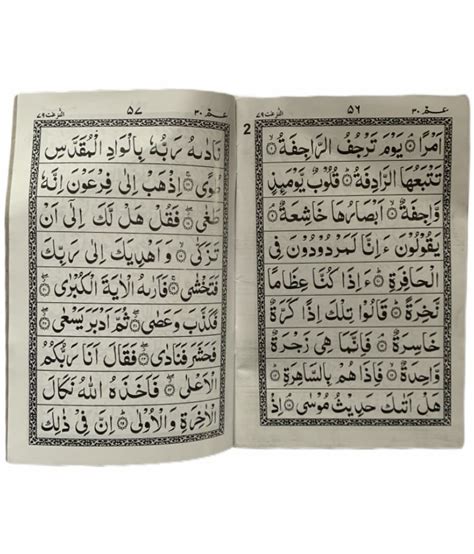 عـمّ ٣٠
٥٦
النّزعٰت ٧٩
2
اَمۡرًا ۞ يَوۡمَ تَرۡجُفُ الرَّاجِفَةُ ۞
تَتۡبَعُهَا الرَّادِفَةُ ۞ قُلُوۡبٌ يَّوۡمَئِذٍ
وَّاجِفَةٌ ۞ اَبۡصَارُهَا خَاشِعَةٌ ۞
يَقُوۡلُوۡنَ ءَاِنَّا لَمَرۡدُوۡدُوۡنَ فِى
الۡحَافِرَةِ ۞ ءَاِذَا كُنَّا عِظَامًا
نَّخِرَةً ۞ قَالُوۡا تِلۡكَ اِذًا كَرَّةٌ
خَاسِرَةٌ ۞ فَاِنَّمَا هِىَ زَجۡرَةٌ
وَّاحِدَةٌ ۞ فَاِذَا هُمۡ بِالسَّاهِرَةِ ۞
هَلۡ اَتٰٮكَ حَدِيۡثُ مُوۡسٰى ۞ اِذۡ
عـمّ ٣٠
٥٧
النّزعٰت ٧٩
نَادٰٮهُ رَبُّهٗ بِالۡوَادِ الۡمُقَدَّسِ
طُوًى ۞ اِذۡهَبۡ اِلٰى فِرۡعَوۡنَ اِنَّهٗ
طَغٰى ۞ فَقُلۡ هَلۡ لَّكَ اِلٰٓى اَنۡ
تَزَكّٰى ۞ وَاَهۡدِيَكَ اِلٰى رَبِّكَ
فَتَخۡشٰى ۞ فَاَرٰٮهُ الۡاٰيَةَ الۡكُبۡرٰى ۞
فَكَذَّبَ وَعَصٰى ۞ ثُمَّ اَدۡبَرَ يَسۡعٰى ۞
فَحَشَرَ فَنَادٰى ۞ فَقَالَ اَنَا رَبُّكُمُ
الۡاَعۡلٰى ۞ فَاَخَذَهُ اللّٰهُ نَكَالَ
الۡاٰخِرَةِ وَالۡاُوۡلٰى ۞ اِنَّ فِىۡ ذٰلِكَ